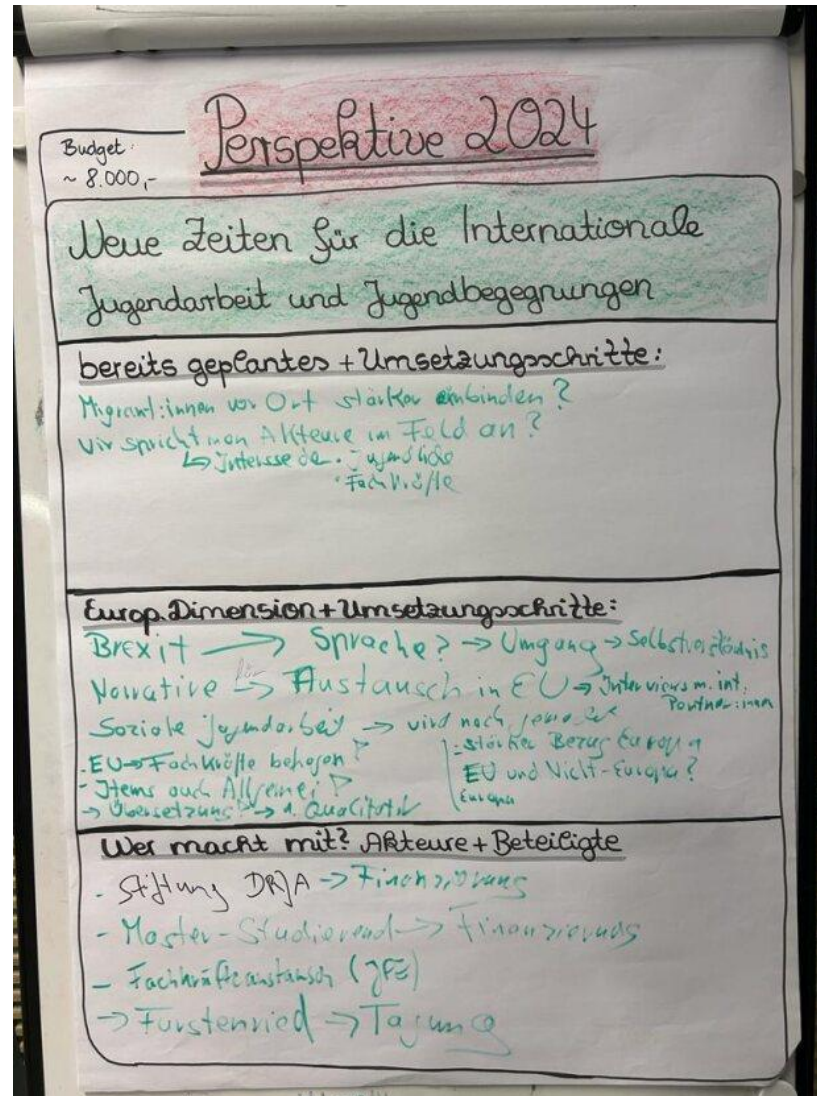 Perspektive 2024
Budget:
~ 8.000,-
Neue Zeiten für die Internationale
Jugendarbeit und Jugendbegegnungen
bereits geplantes + Umsetzungsschritte:
Migrant:innen vor Ort stärker einbinden?
Wir spricht man Akteure im Feld an?
↳ Interesse de • Jugendliche
• Fachkräfte
Europ. Dimension + Umsetzungsschritte:
Brexit → Sprache? → Umgang → Selbstverständnis
für
Narrative → Austausch in EU → Interviews m. int.
Partner:innen
Soziale Jugendarbeit → wird noch
- EU → Fachkräfte behogen?
- Items auch Allgemei
→ Übersetzung → 1. Qualitativ
- stärker Bezug Europa
EU und Nicht-Europa?
Europa
Wer macht mit? Akteure + Beteiligte
- Stiftung DRJA → Finanzierung
- Master-Studierend → Finanzierung
- Fachkräfteaustausch (JFE)
→ Fürstenried → Tagung